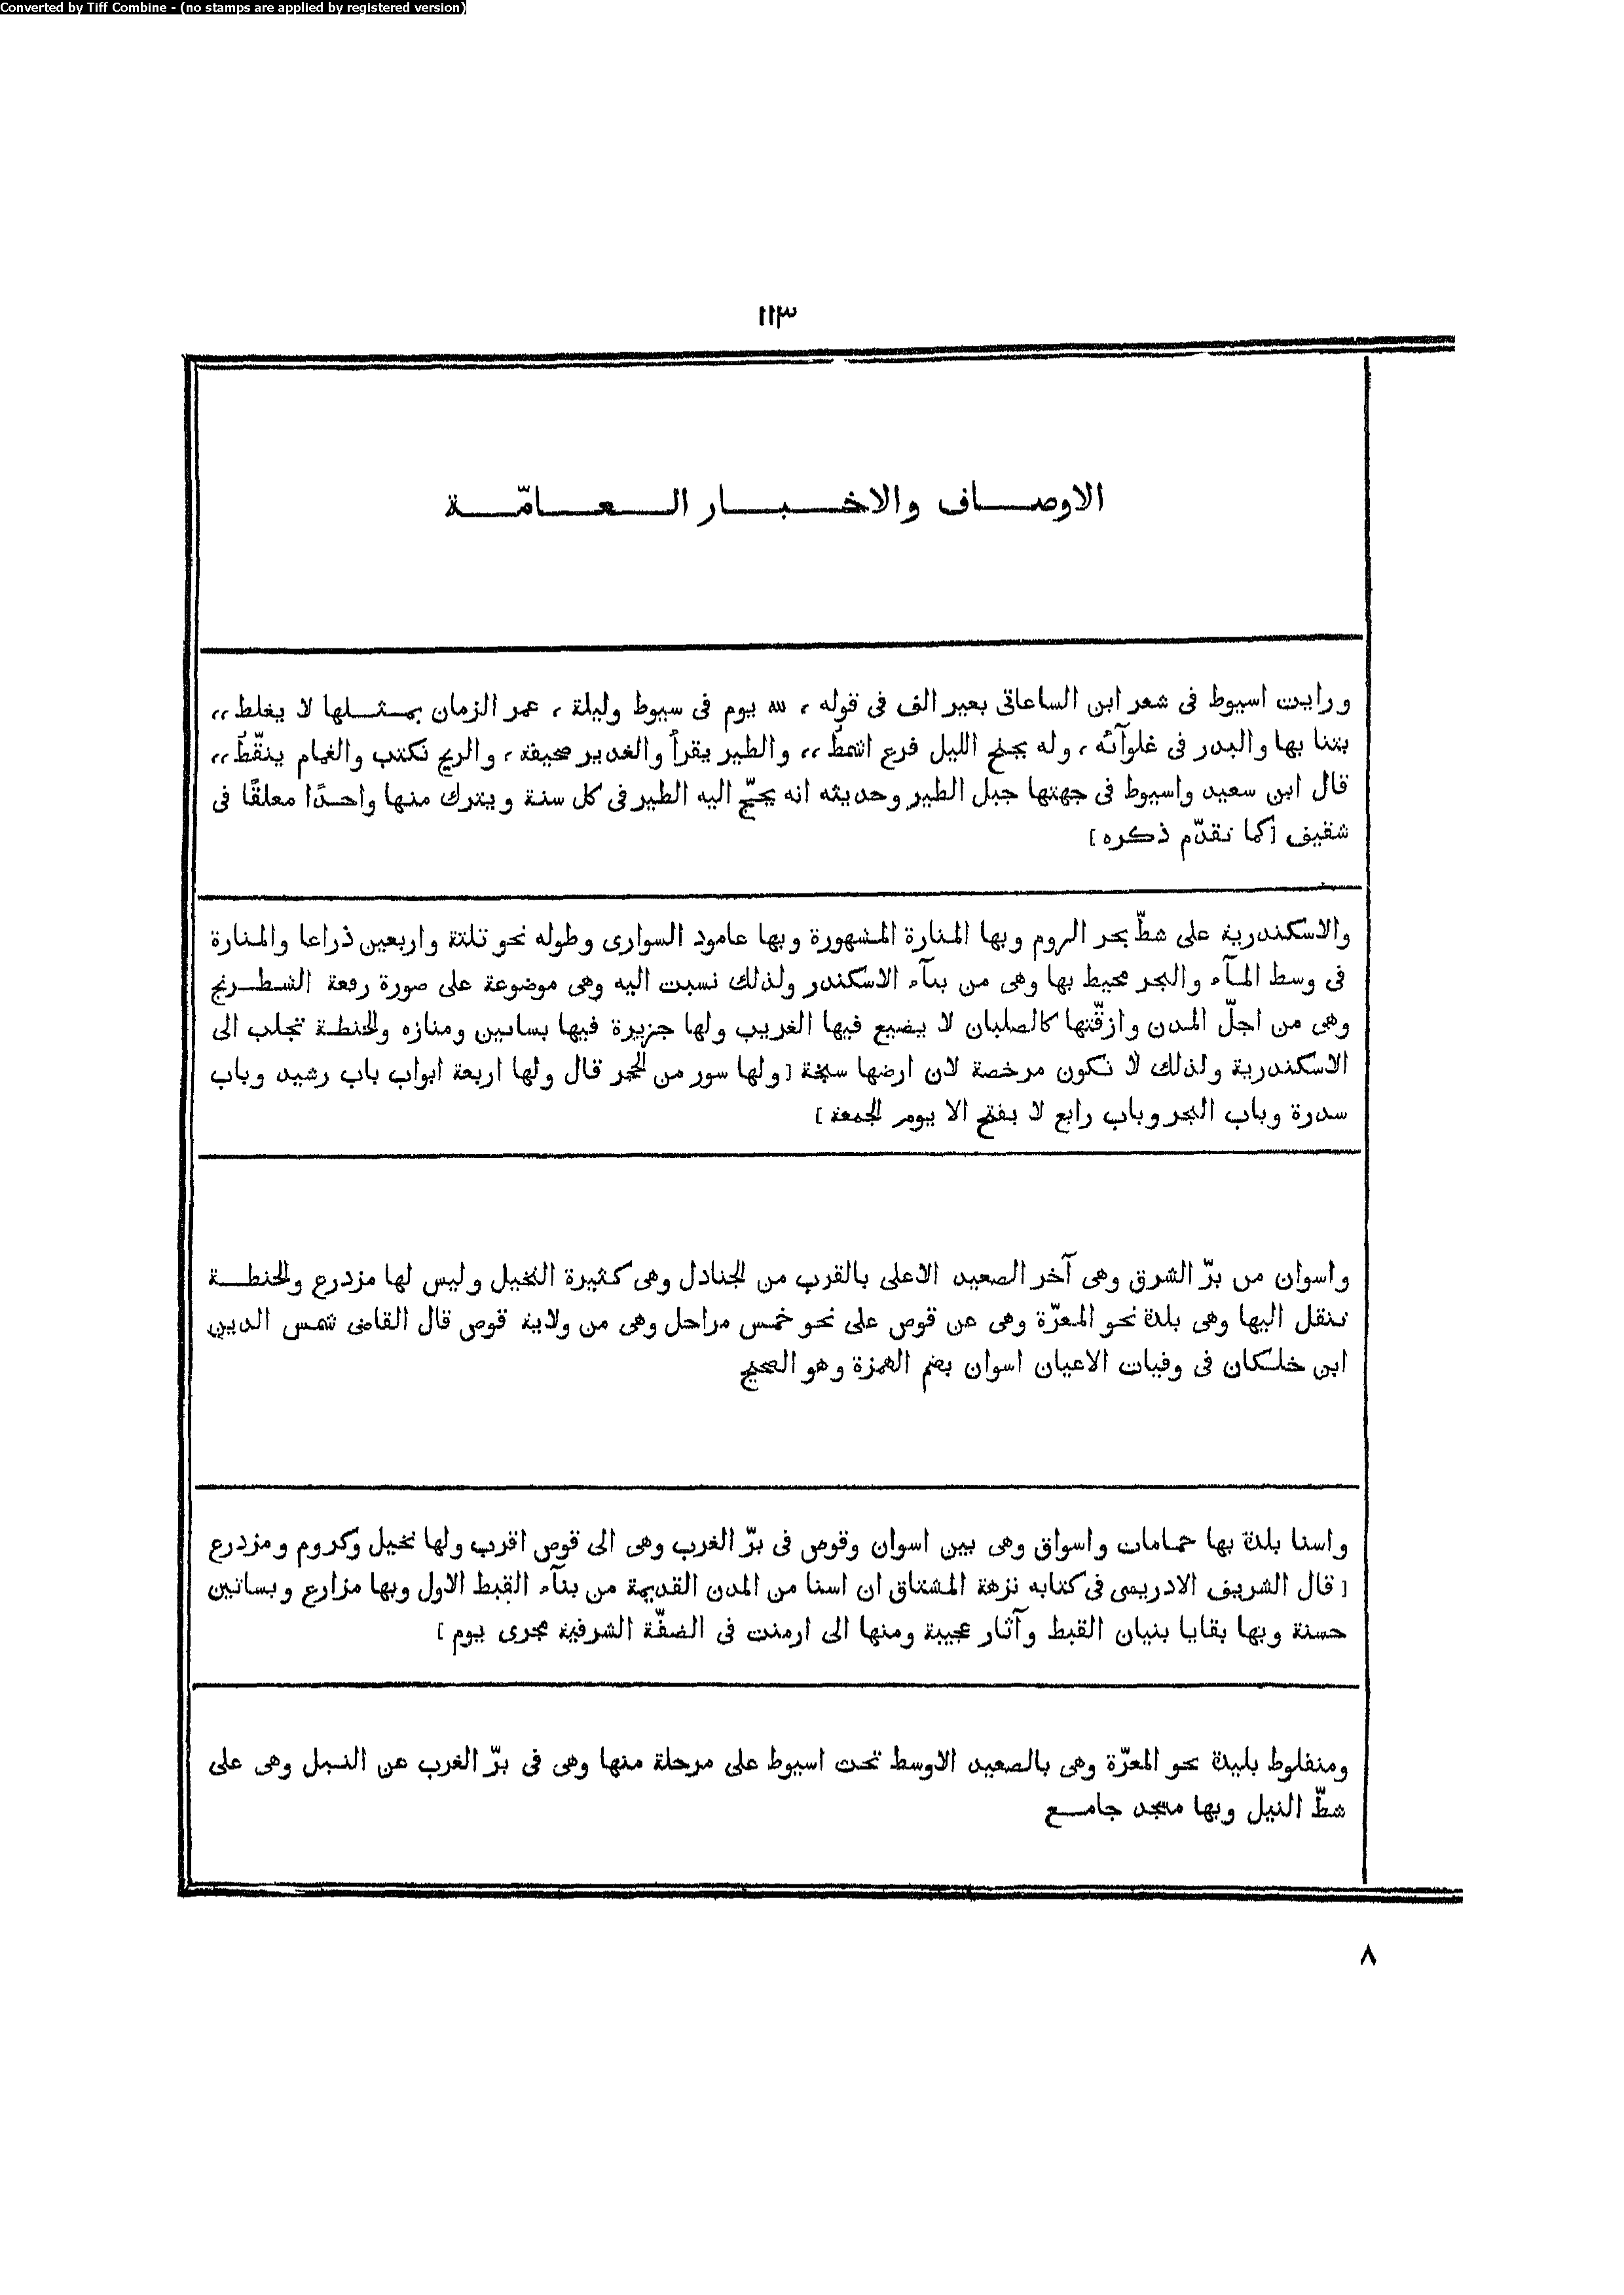 Converted by Tiff Combine - (no stamps are applied by registered version)
١١٣
الاوصاف والاخبار العامّة
ورايت اسيوط فى شعر ابن الساعاتى بغير الف فى قوله ، لله يوم فى سيوط وليلة ، عمر الزمان بمثلها لا يغلط ،،
بتنا بها والبدر فى غلوآئه ، وله بجنح الليل فرع اشمطّ ،، والطير يقرأ والغدير صحيفة ، والريح تكتب والغمام ينقّط ،،
قال ابن سعيد واسيوط فى جهتها جبل الطير وحديثه انه يحجّ اليه الطير فى كل سنة ويترك منها واحدًا معلقًا فى
شقيف [كما تقدّم ذكره]
والاسكندرية على شطّ بحر الروم وبها المنارة المشهورة وبها عامود السوارى وطوله نحو ثلثة واربعين ذراعا والمنارة
فى وسط المآء والبحر محيط بها وهى من بنآء الاسكندر ولذلك نسبت اليه وهى موضوعة على صورة رقعة الشطرنج
وهى من اجلّ المدن وازقّتها كالصلبان لا يضيع فيها الغريب ولها جزيرة فيها بساتين ومنازه والحنطة تجلب الى
الاسكندرية ولذلك لا تكون مرخصة لان ارضها سبخة [ولها سور من الحجر قال ولها اربعة ابواب باب رشيد وباب
سدرة وباب البحر وباب رابع لا يفتح الا يوم الجمعة]
واسوان من برّ الشرق وهى آخر الصعيد الاعلى بالقرب من الجنادل وهى كثيرة النخيل وليس لها مزدرع والحنطة
تنقل اليها وهى بلدة نحو المعرّة وهى عن قوص على نحو خمس مراحل وهى من ولاية قوص قال القاضى شمس الدين
ابن خلكان فى وفيات الاعيان اسوان بضم الهمزة وهو الصحيح
واسنا بلدة بها حمامات واسواق وهى بين اسوان وقوص فى برّ الغرب وهى الى قوص اقرب ولها نخيل وكروم ومزدرع
[قال الشريف الادريسى فى كتابه نزهة المشتاق ان اسنا من المدن القديمة من بنآء القبط الاول وبها مزارع وبساتين
حسنة وبها بقايا بنيان القبط وآثار عجيبة ومنها الى ارمنت فى الضفّة الشرقية مجرى يوم]
ومنفلوط بليدة نحو المعرّة وهى بالصعيد الاوسط تحت اسيوط على مرحلة منها وهى فى برّ الغرب عن النيل وهى على
شطّ النيل وبها مسجد جامع
٨